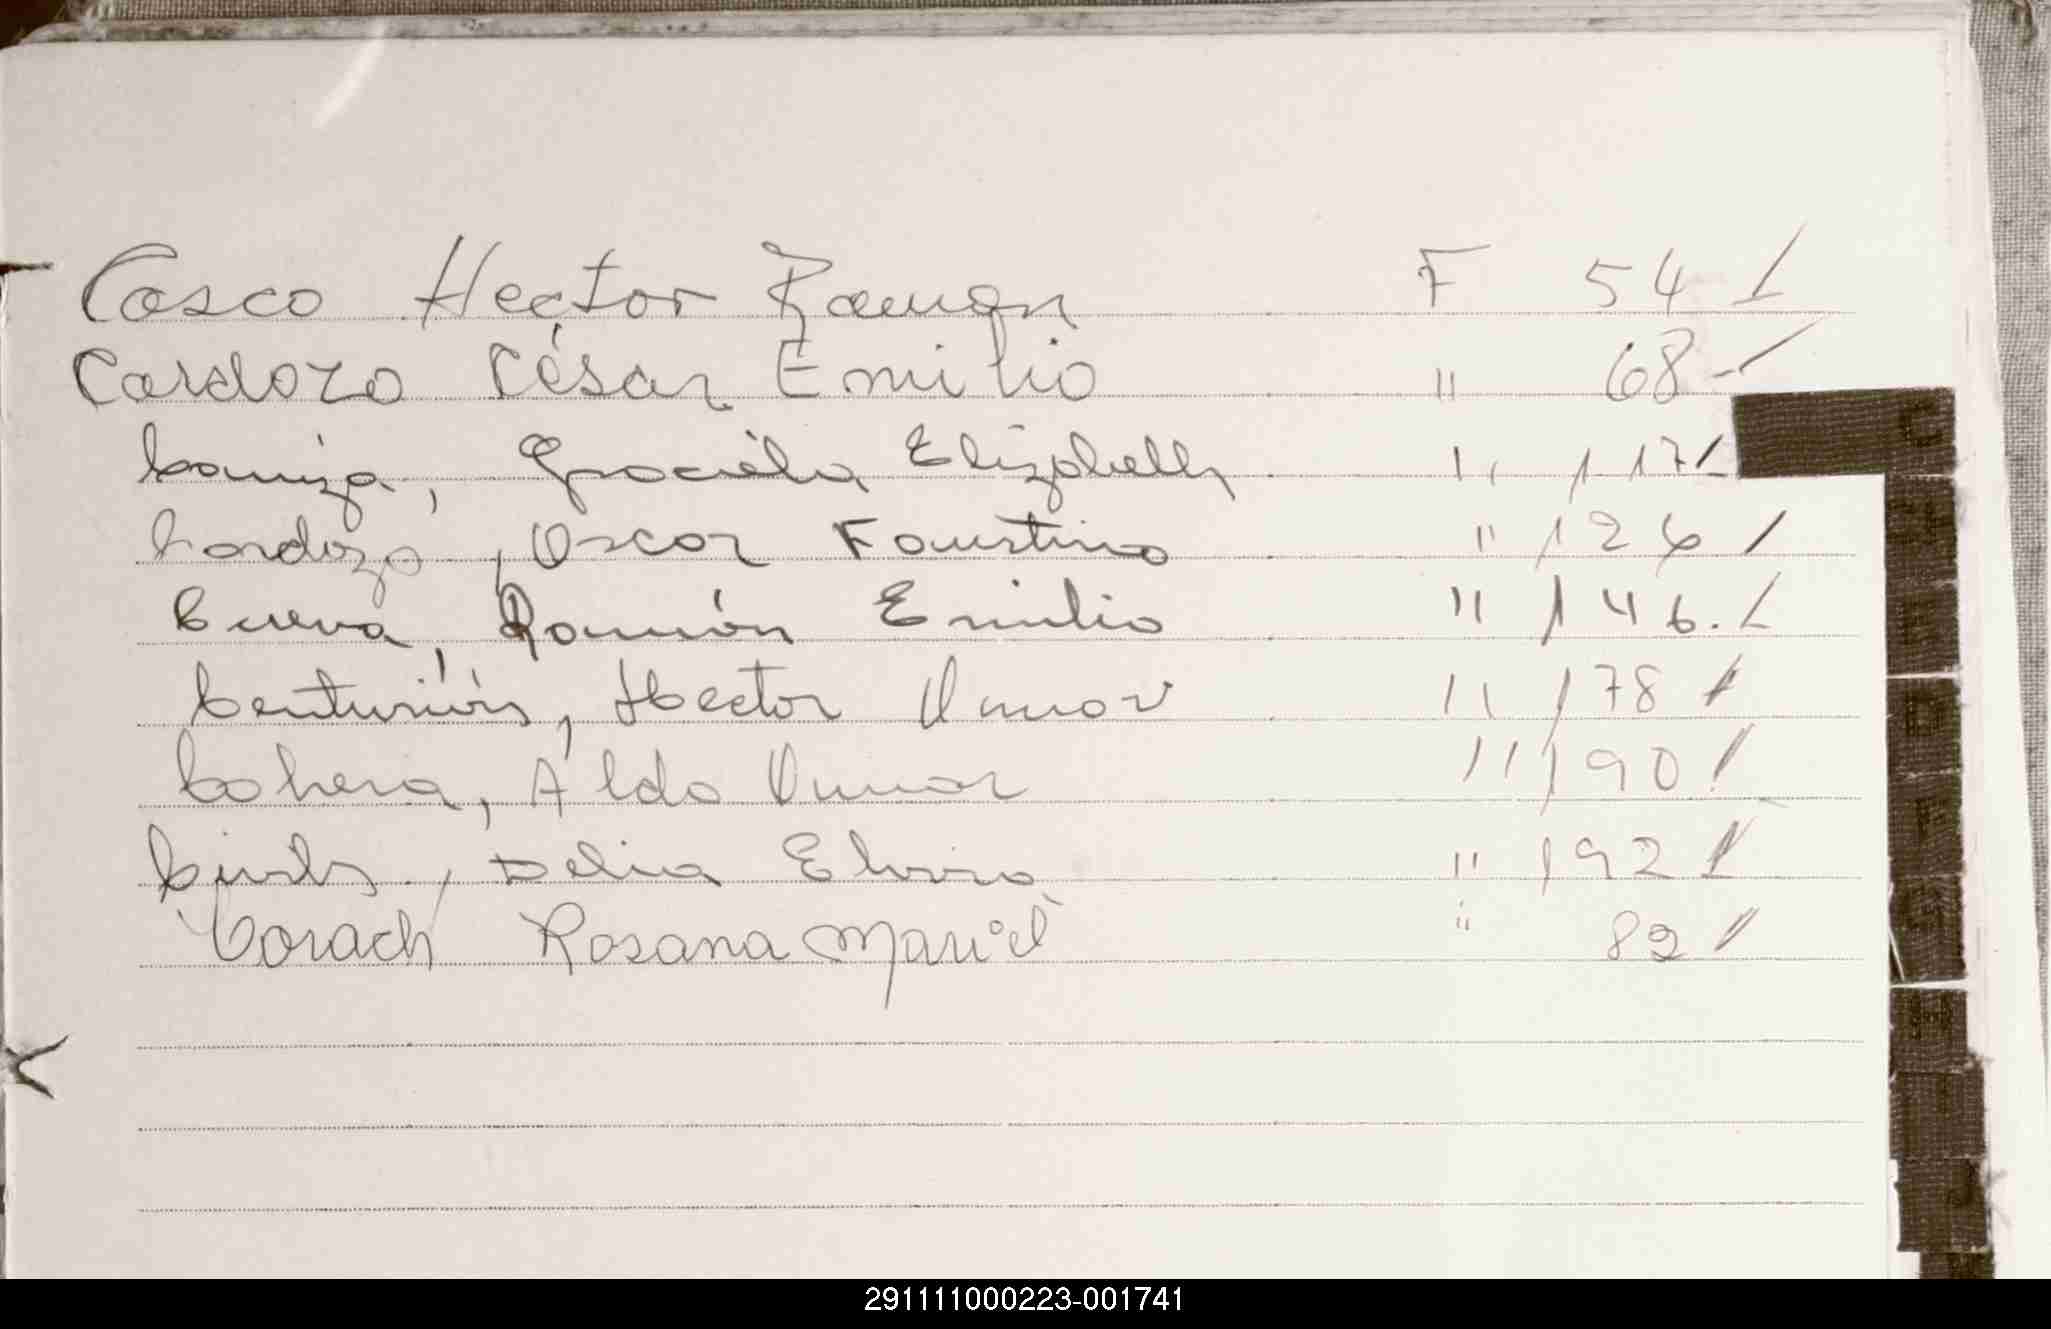 Casco Hector Ramon F 54
Cardozo César Emilio " 68
Graciela Elizabeth " 117
Cardozo, Oscar Faustino " 126
Cueva, Ramón Emilio " 146.
Centurión, Hector Omar " 178
Cohera, Aldo Omar " 190
Delia Elvira " 192
Corach Rosana Mariel " 82
C
CH
E
D
F
G
H
I
J
291111000223-001741